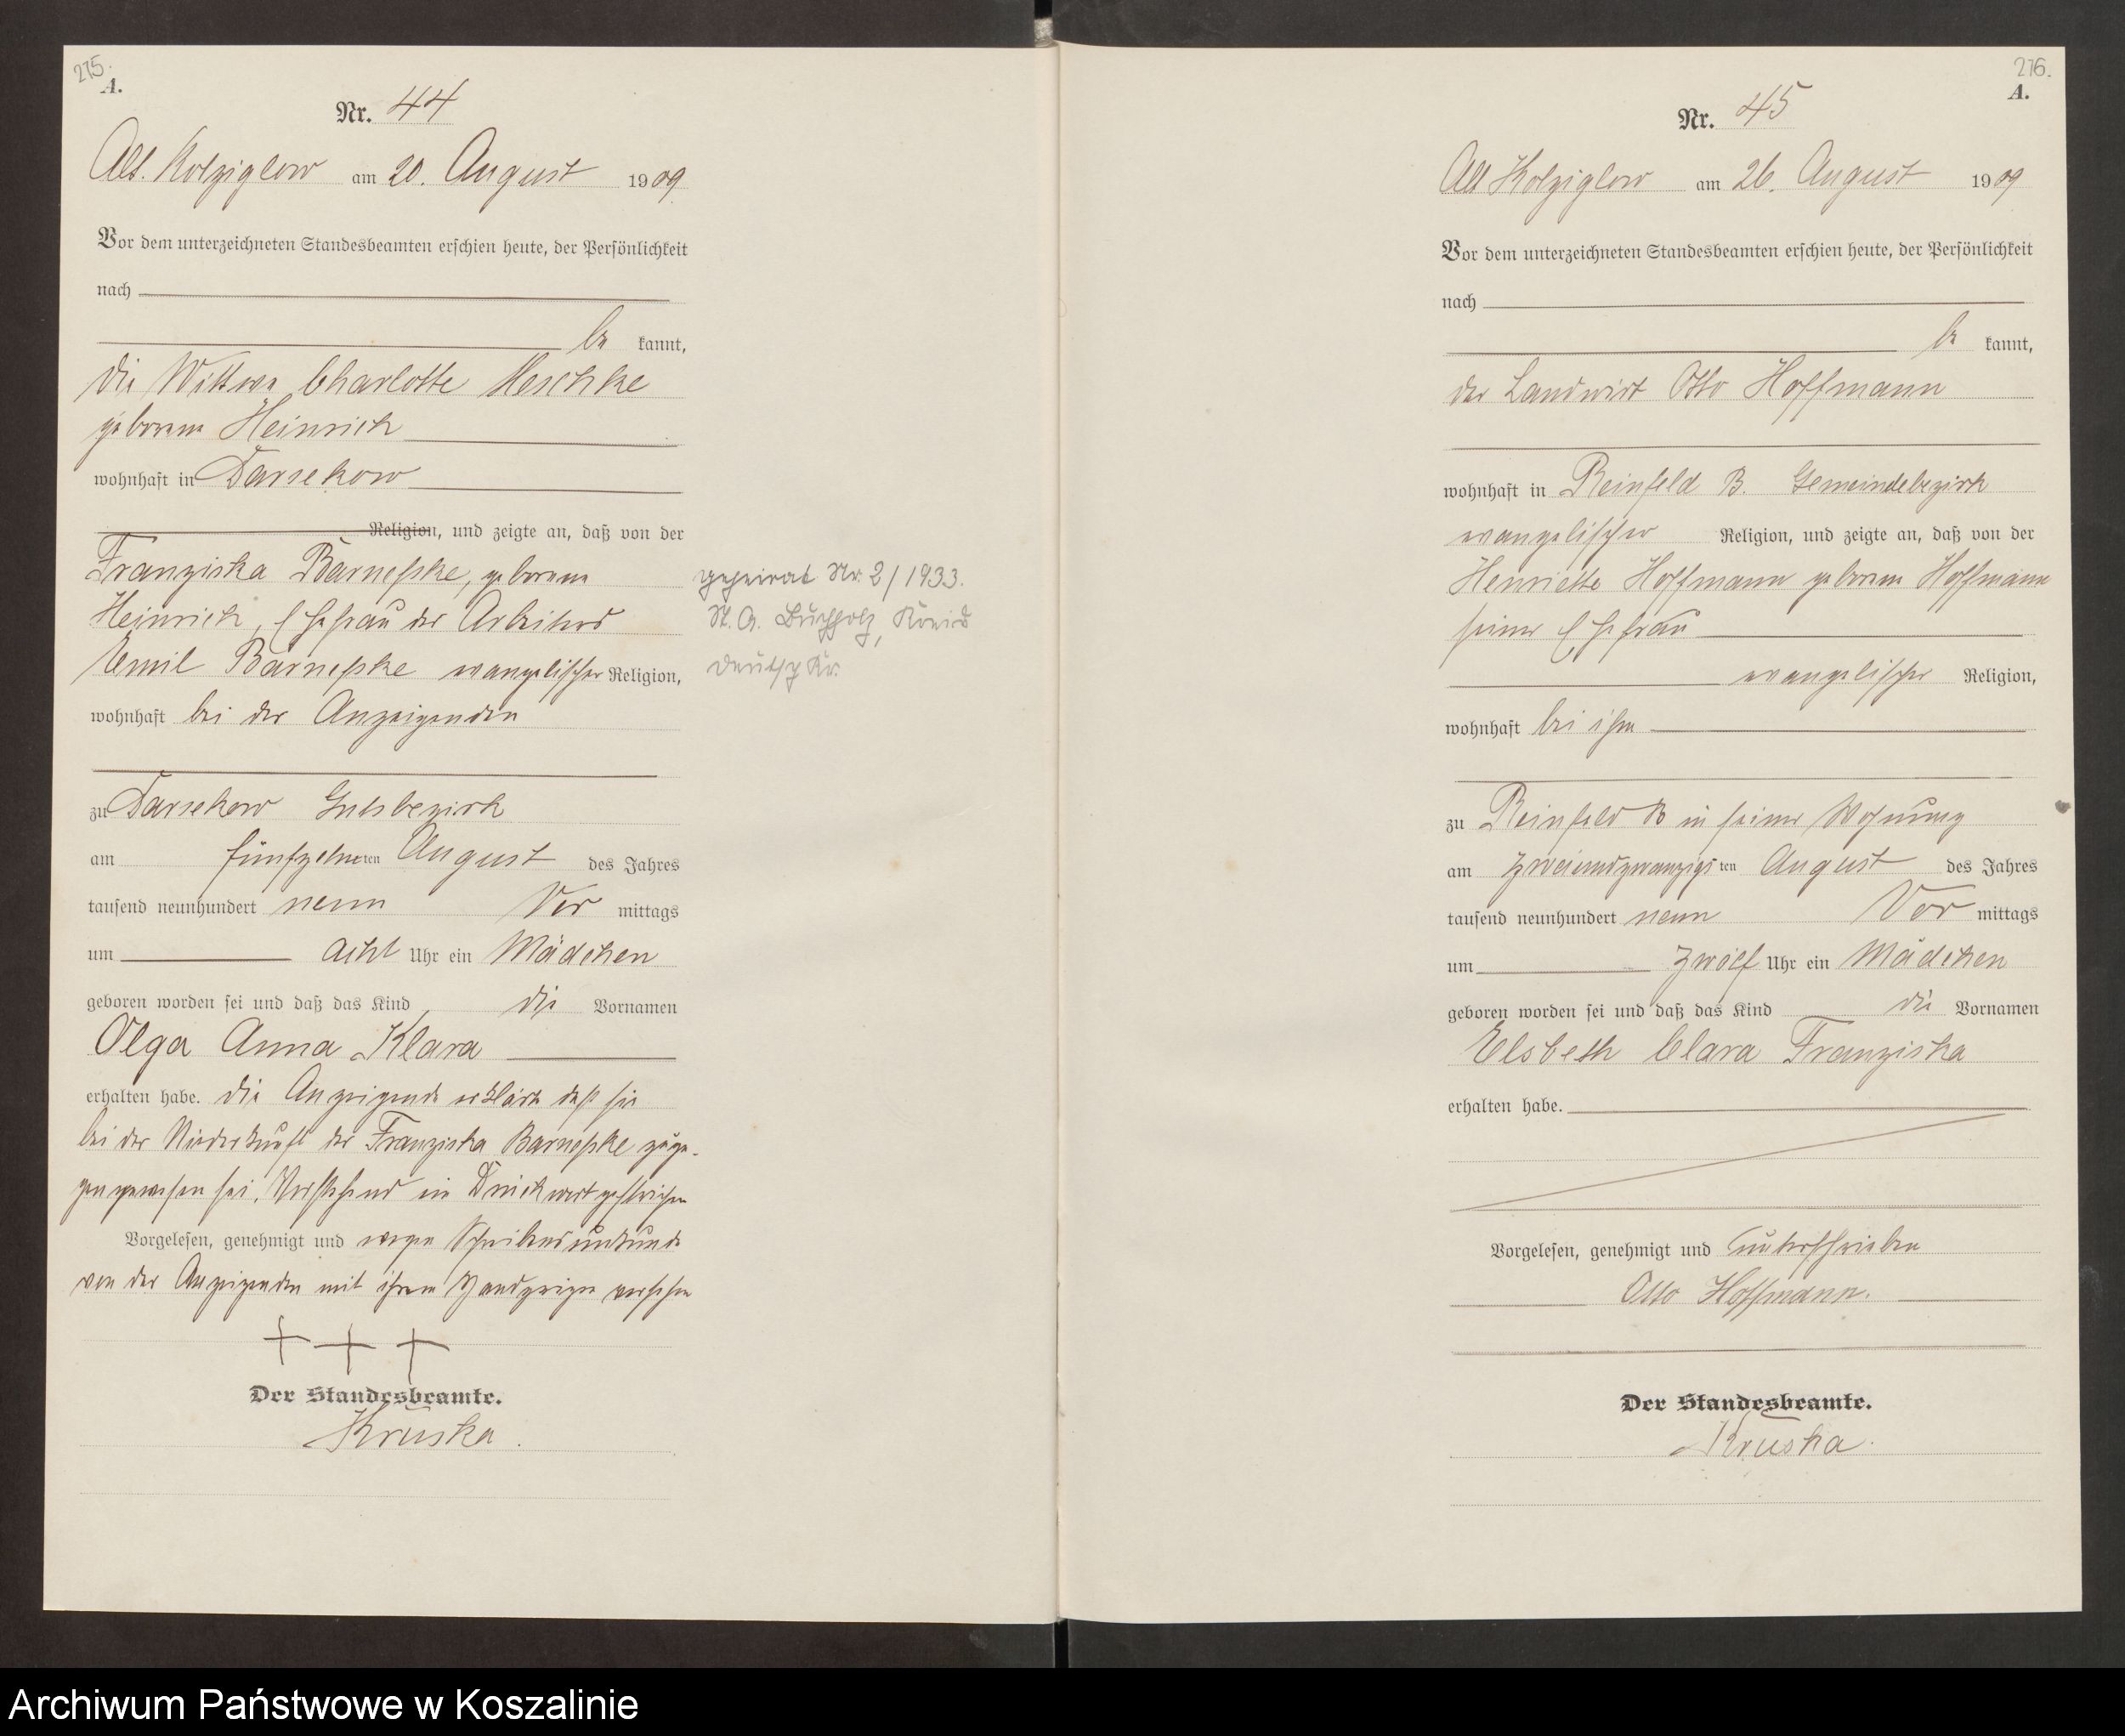 275.
A.
Nr. 44
Alt. Kolziglow am 20. August 1909
Vor dem unterzeichneten Standesbeamten erschien heute, der Persönlichkeit
nach
be kannt,
die Wittwe Charlotte Meschke
geborene Heinrich
wohnhaft in Darsekow
Religion, und zeigte an, daß von der
Franziska Barneßke, geborene
Heinrich, Ehefrau des Arbeiters
Emil Barneßke evangelischer Religion,
wohnhaft bei der Anzeigenden
zu Darsekow Gutsbezirk
am fünfzehnten August des Jahres
tausend neunhundert neun Vor mittags
um acht Uhr ein Mädchen
geboren worden sei und daß das Kind die Vornamen
Olga Anna Klara
erhalten habe. Die Anzeigende erklärte daß sie
bei der Niederkunft der Franziska Barneßke zuge-
gen gewesen sei. Vorstehend ein Druckwort gestrichen
Vorgelesen, genehmigt und wegen Schreibensunkunde
von der Anzeigenden mit ihrem Handzeichen versehen
+ + +
Der Standesbeamte.
Kruska.
geheirat Nr. 2/1933.
St. A. Buchholz,
Deutsch Kr.
276.
A.
Nr. 45
Alt Kolziglow am 26. August 1909
Vor dem unterzeichneten Standesbeamten erschien heute, der Persönlichkeit
nach
be kannt,
der Landwirt Otto Hoffmann
wohnhaft in Reinfeld B. Gemeindebezirk
evangelischer Religion, und zeigte an, daß von der
Henriette Hoffmann geborene Hoffmann
seiner Ehefrau
evangelischer Religion,
wohnhaft bei ihm
zu Reinfeld B in seiner Wohnung
am zweiundzwanzigsten August des Jahres
tausend neunhundert neun Vor mittags
um zwölf Uhr ein Mädchen
geboren worden sei und daß das Kind die Vornamen
Elsbeth Clara Franziska
erhalten habe.
Vorgelesen, genehmigt und unterschrieben
Otto Hoffmann.
Der Standesbeamte.
Kruska.
Archiwum Państwowe w Koszalinie